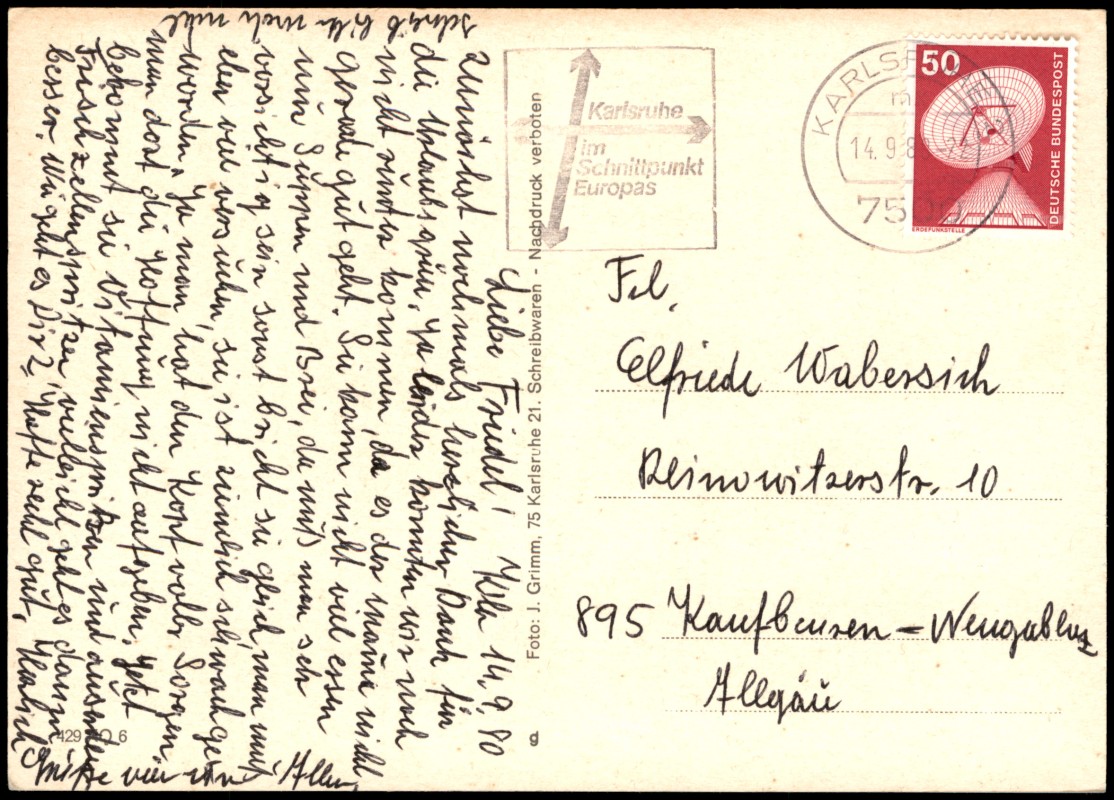 Liebe Friedel! Khe 14.9.80
Zunächst nochmals herzlichen Dank für
die Urlaubsgrüße. Ja leider konnten wir noch
nicht runter kommen, da es der Mama nicht
gerade gut geht. Sie kann nicht viel essen
nur Suppen und Brei, da muß man sehr
vorsichtig sein sonst bricht sie gleich, man muß
eben viel versuchen, sie ist ziemlich schwach ge-
worden. Ja man hat den Kopf voller Sorgen
man darf die Hoffnung nicht aufgeben. Jetzt
bekommt sie Vitaminspritzen und ausserdem
Frischzellenspritzen, vielleicht geht es dann
besser. Wie geht es Dir? Hoffe recht gut. Herzlich
Grüße von uns Allen
schreib bitte noch mehr
Foto: J. Grimm, 75 Karlsruhe 21. Schreibwaren - Nachdruck verboten
g
429 6
Karlsruhe
im
Schnittpunkt
Europas
KARLSR
14.9.8
75
50
DEUTSCHE BUNDESPOST
ERDEFUNKSTELLE
Frl.
Elfriede Wabersich
Reinowitzerstr. 10
895 Kaufbeuren - Neugablonz
Allgäu